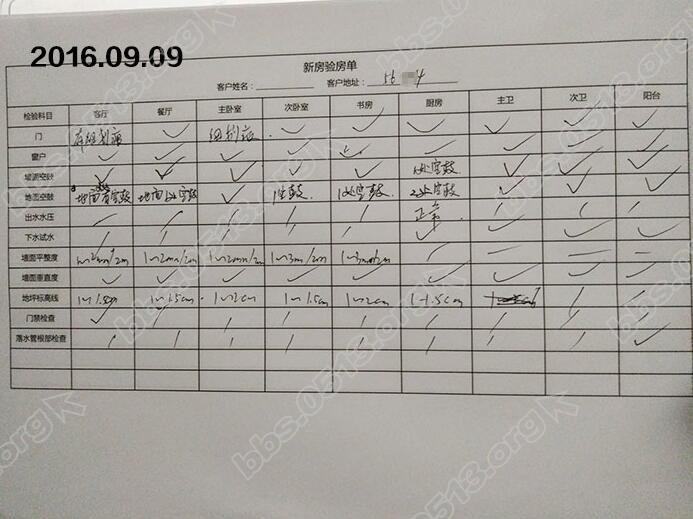 2016.09.09
新房验房单
客户姓名: 客户地址: 56 4
检验科目 客厅 餐厅 主卧室 次卧室 书房 厨房 主卫 次卫 阳台
门 有细划痕 ✓ 细划痕 ✓ ✓ ✓ ✓ ✓
窗户 ✓ ✓ ✓ ✓ ✓ ✓ ✓ ✓
墙面空鼓 ✓ ✓ ✓ ✓ ✓ 1处空鼓 ✓ ✓ ✓
地面空鼓 地面有空鼓 地面1处空鼓 ✓ 1空鼓 1处空鼓. 2处空鼓 ✓ ✓ ✓
出水水压 / / / / / 正常 / / /
下水试水 / / / / / ✓ ✓ ✓ ✓
墙面平整度 1~2mm/2m 1~2mm/2m 1~2mm/2m 1~3mm/2m 1~3mm/2m
墙面垂直度 ✓ ✓ ✓ ✓ ✓ ✓ ✓ ✓ ✓
地坪标高线 1~1.5cm 1~1.5cm 1~2cm 1~1.5cm 1~2cm 1~1.5cm
门禁检查 ✓ / / / / / / / /
落水管根部检查 / / / / / / / / ✓
bbs.0513.org